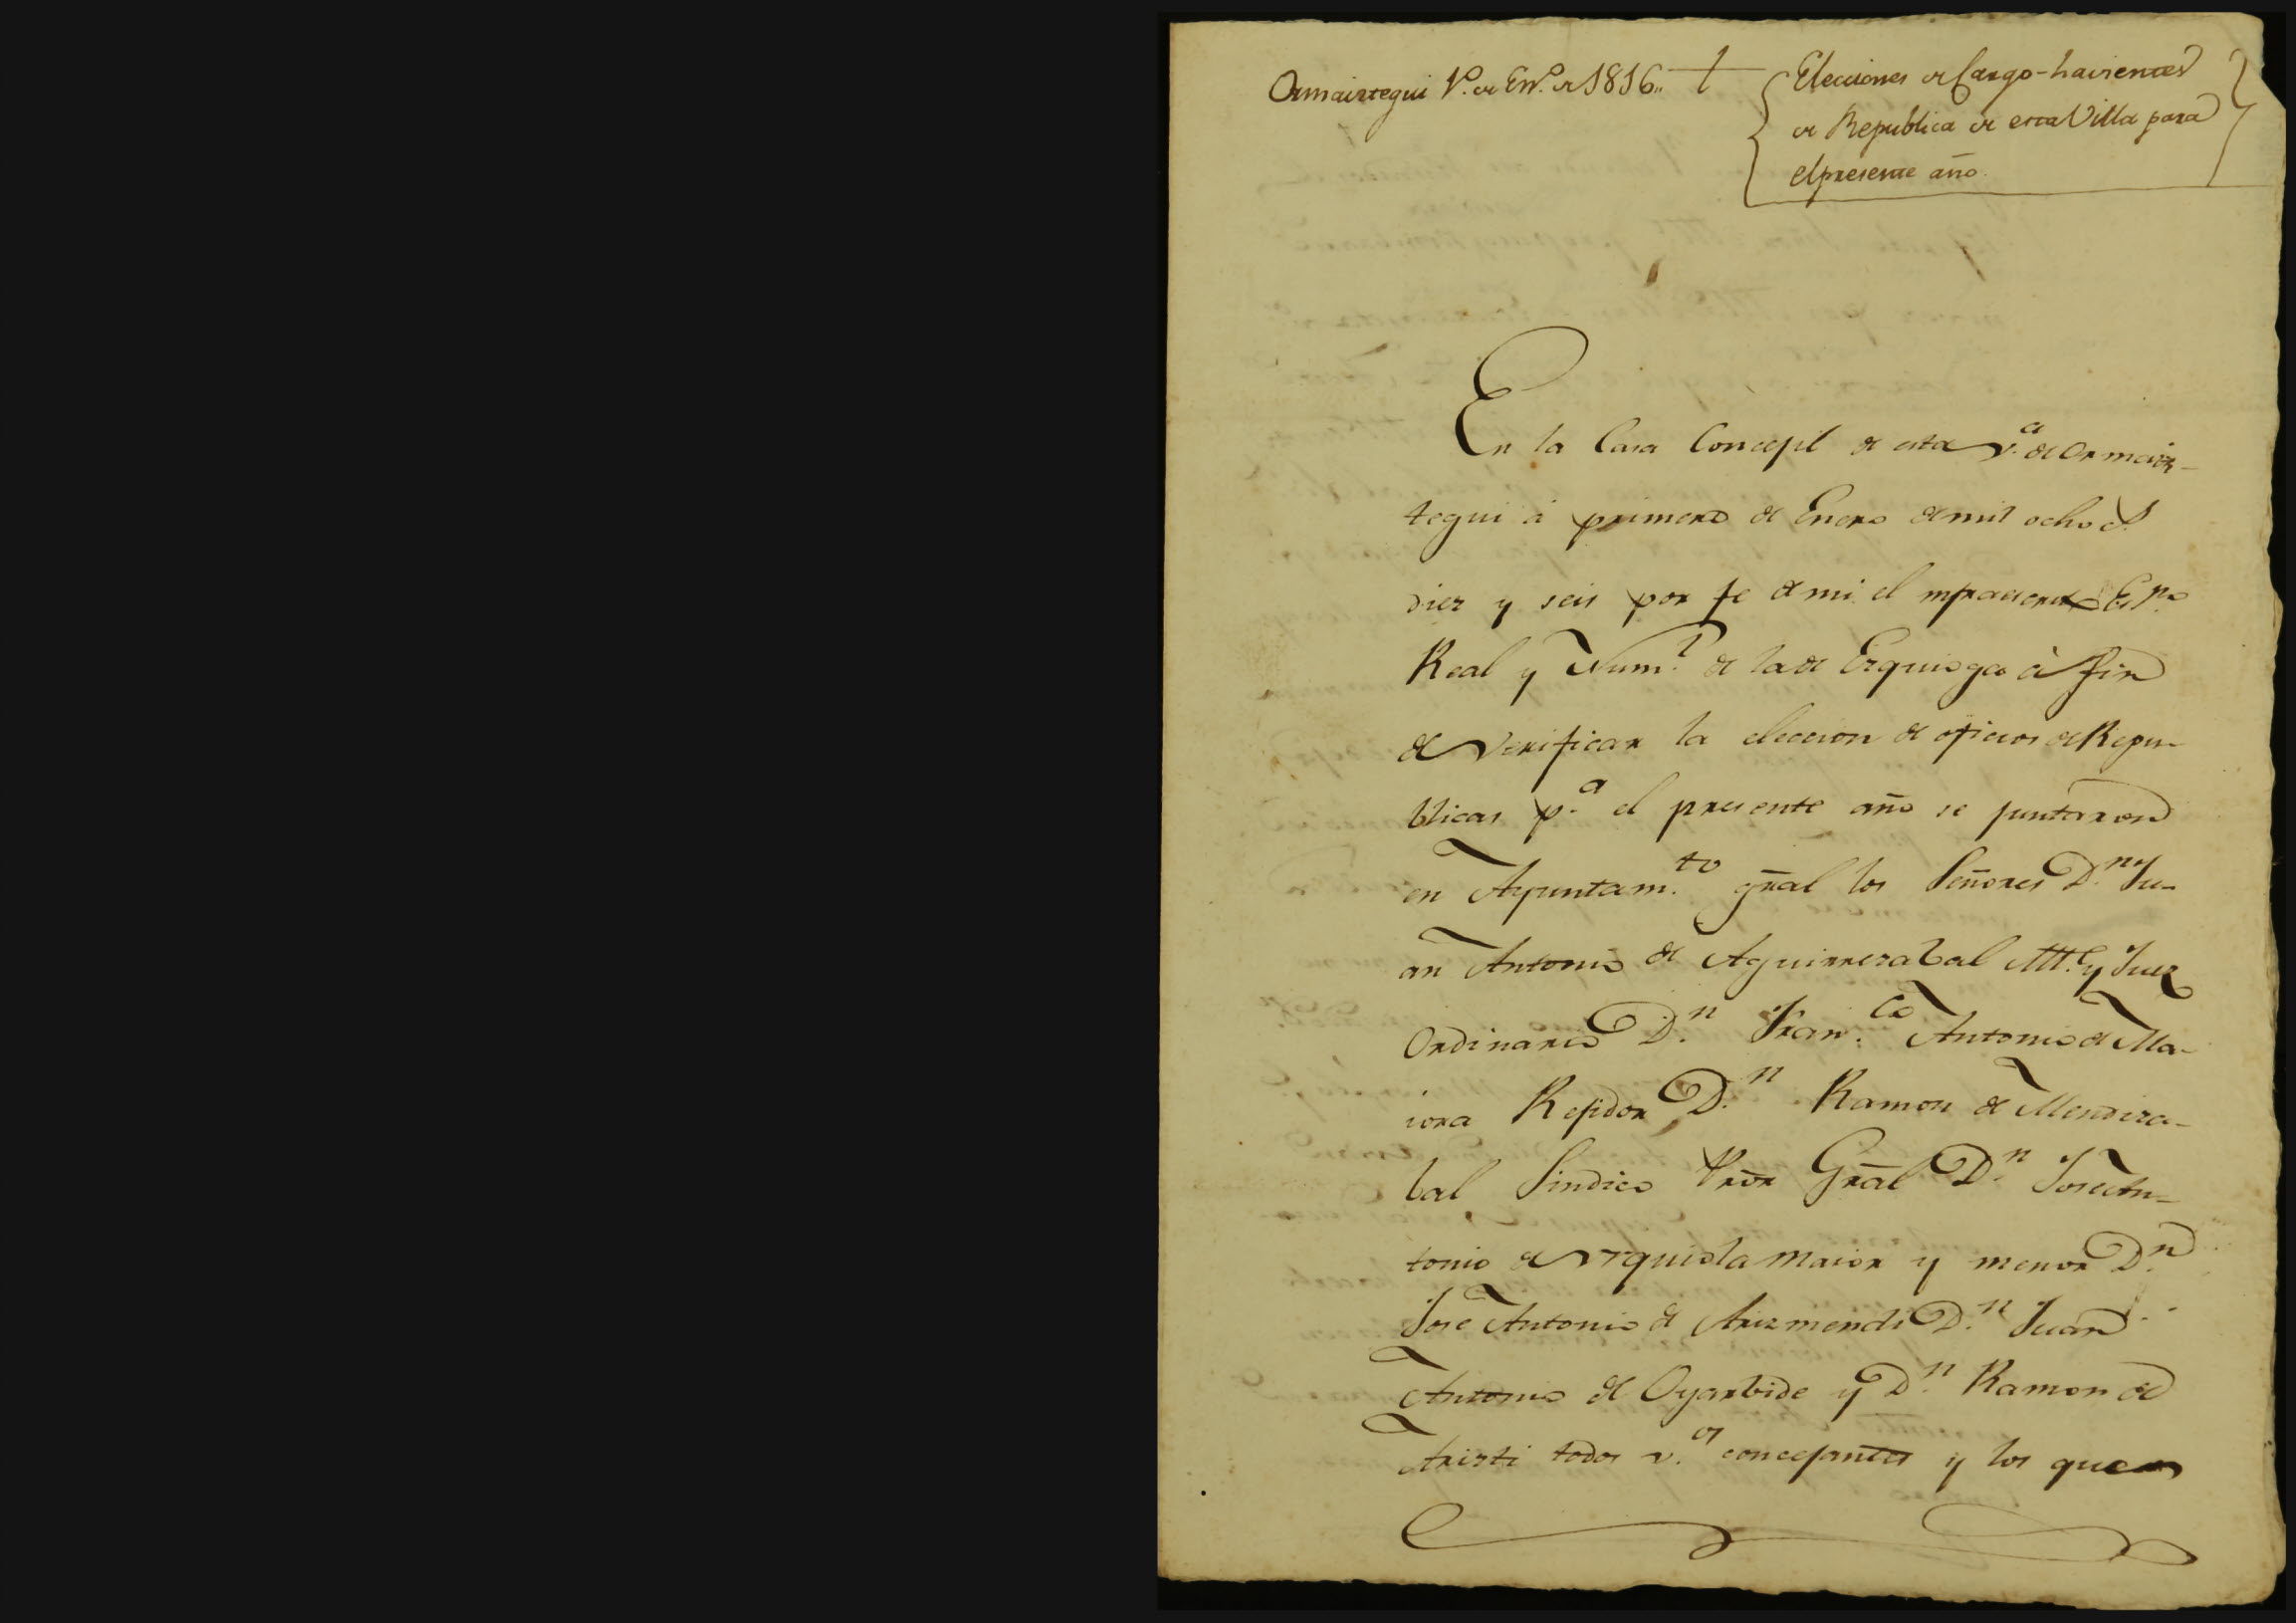 Ormaiztegui 1º. de En.º de 1816.. †
Elecciones de Cargo-havientes
de Republica de esta Villa para
el presente año
En la Casa Concejil de esta v.ª de Ormaiz-
tegui á primero de Enero de mil ocho
diez y seis por fe de mi el infraescrito Es.no
Real y Num.l de la de Ezquioga à fin
de verificar la eleccion de oficios de Repu-
blicas p.ª el presente año se juntaron
en Ayuntam.to gral los Señores D.n Ju-
an Antonio de Aguirrezabal Alt.e y Juez
Ordinario D.n Fran.co Antonio de Ma-
iora Rejidor D.n Ramon de Mendiza-
bal Sindico Pror Gral D.n Jose An-
tonio de Vrquiola maior y menor D.n
Jose Antonio de Arizmendi D.n Juan
Antonio de Oyarbide y D.n Ramon de
Aristi todos v.os concejantes y los que